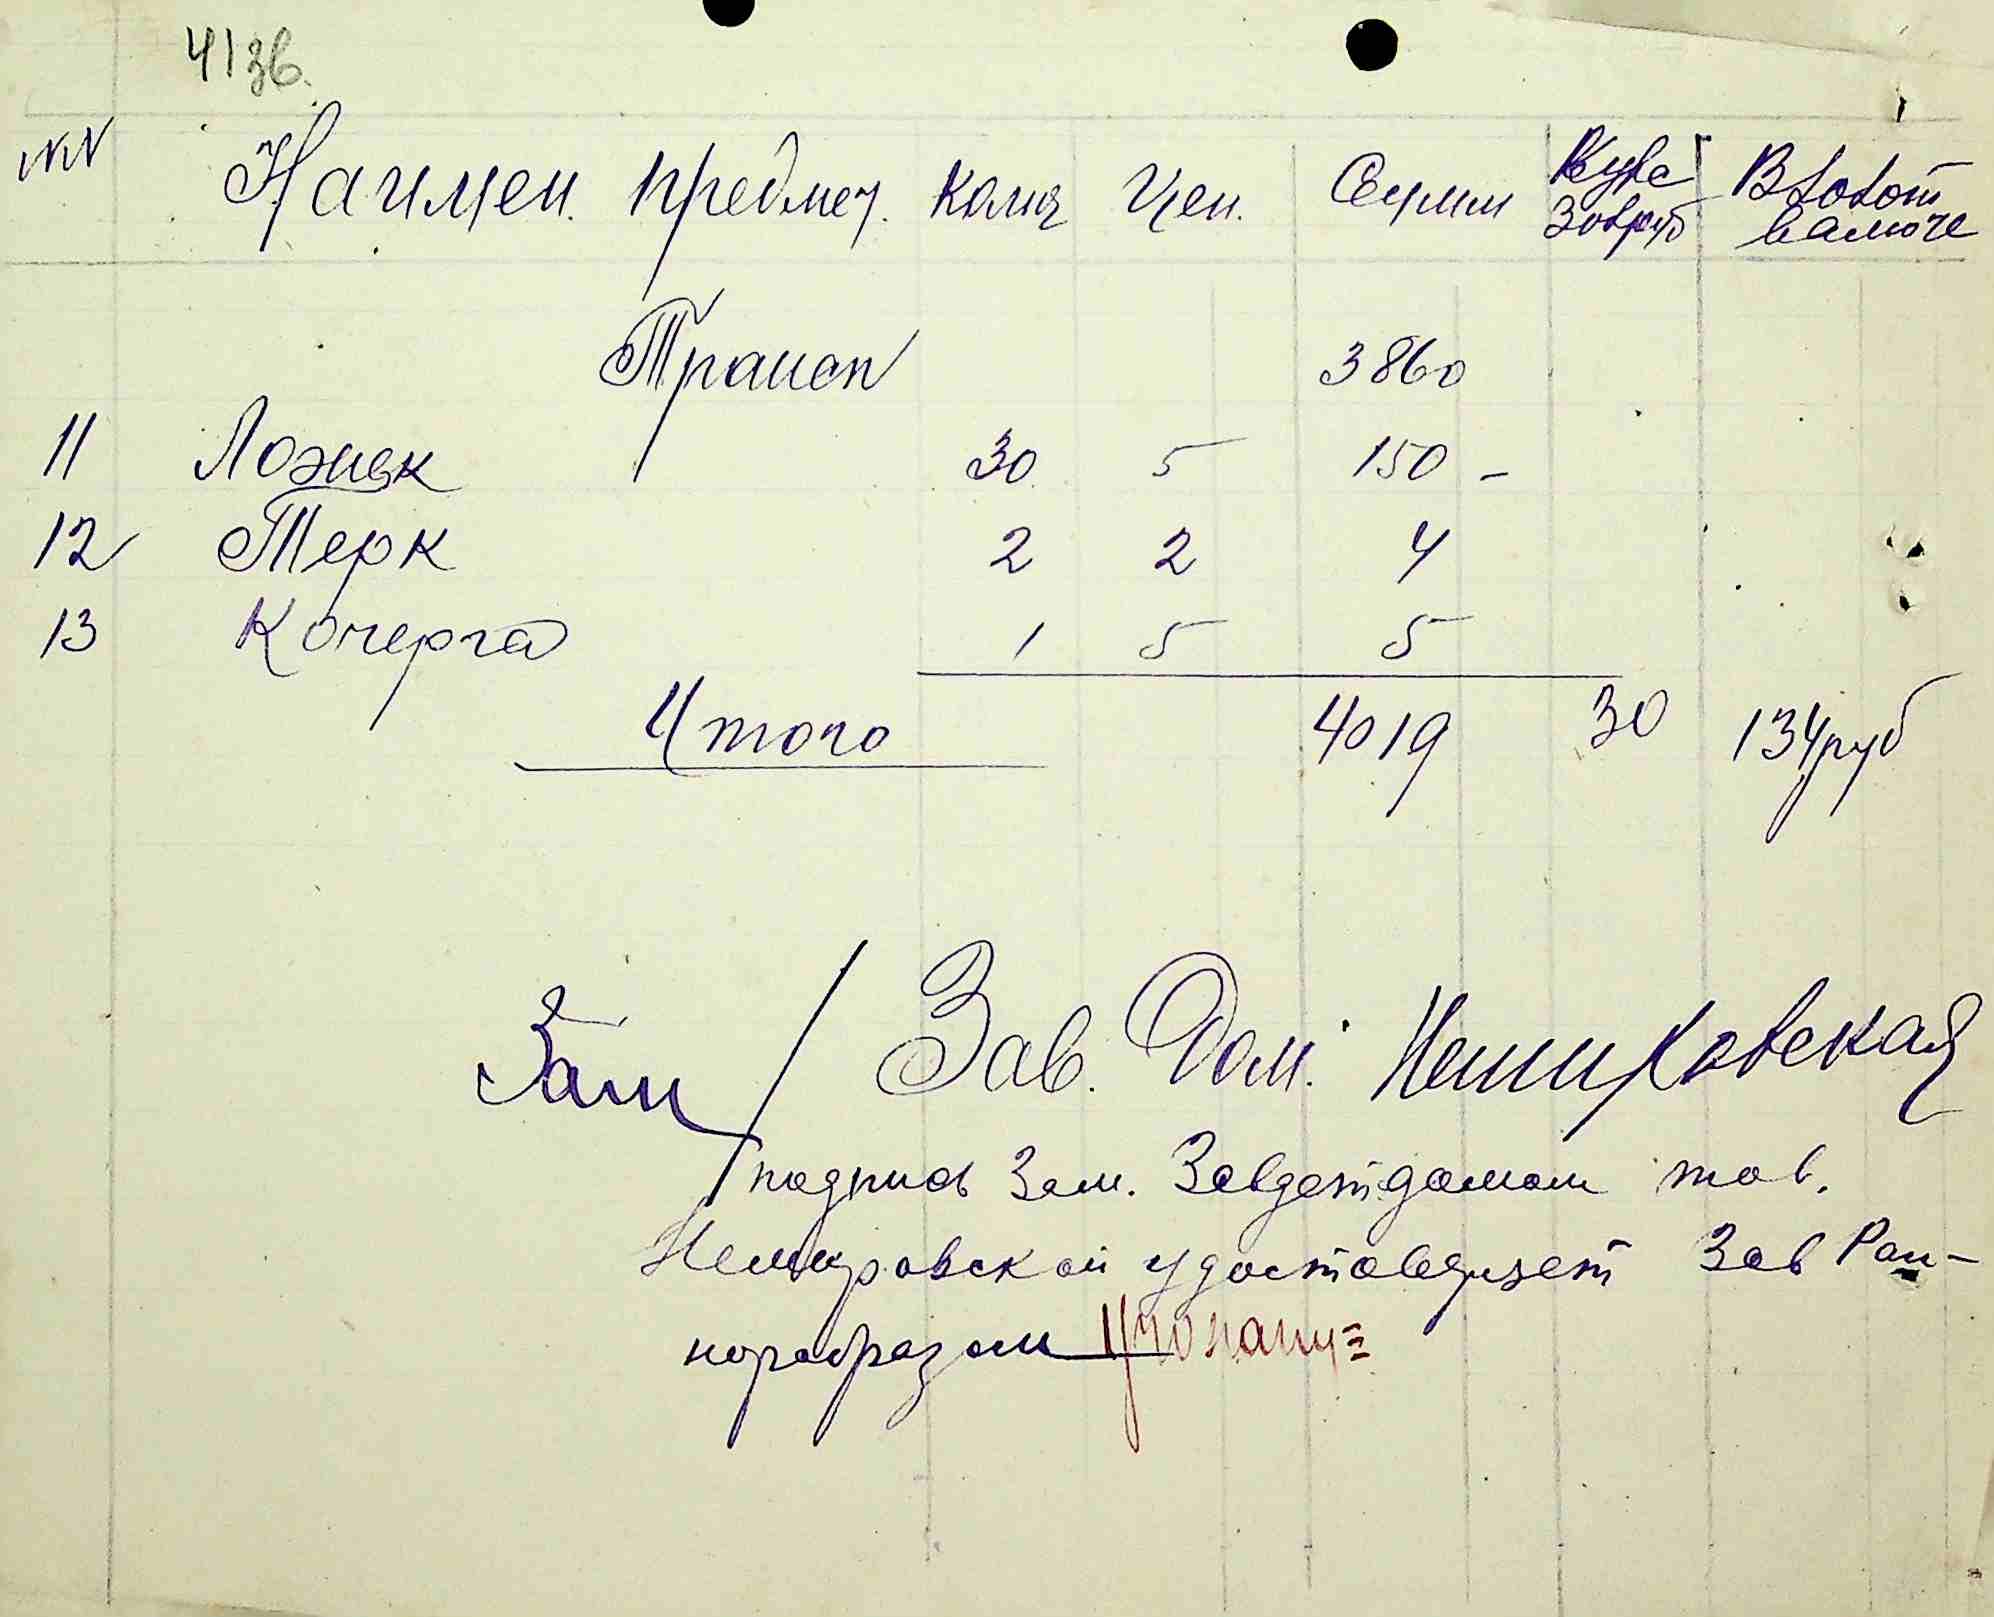 41зв.
NN Наимен. предмет. Колич Цен. Сумм Курс Зовруб В золот валюте
Трансп 3860
11 Ложек 30 5 150 -
12 Терк 2 2 4
13 Кочерга 1 5 5
Итого 4019 30 134руб
Зам / Зав. Дом. Немировская
подпись Зам. Завдетдомом тов.
Немировской удостоверяет Зав Рай-
норобразом